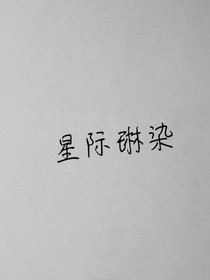 星际琳染